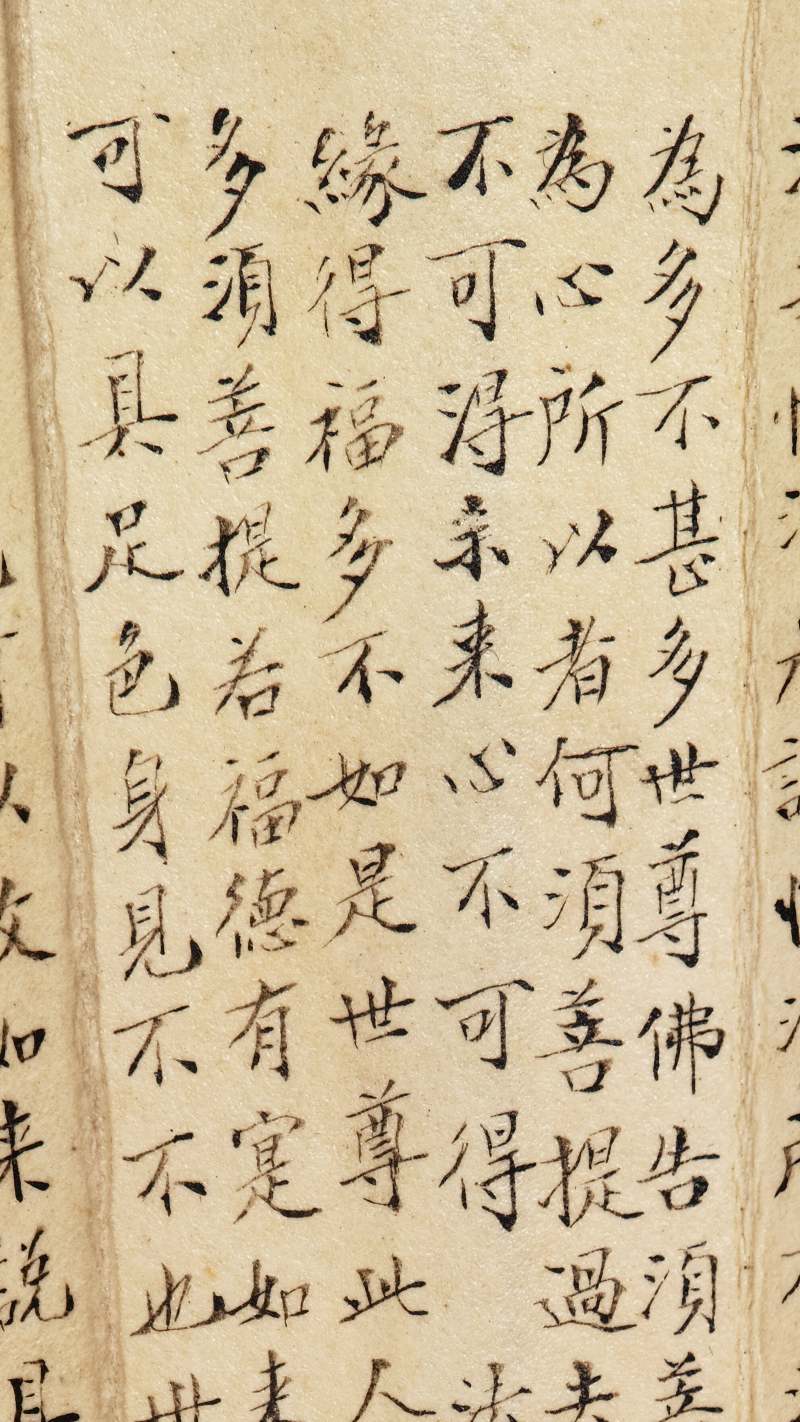 為多不甚多世尊佛告須菩
為心所以者何須菩提過去
不可得未来心不可得 法
緣得福多不如是世尊此人
多須菩提若福德有寔如来
可以具足色身見不不也世
以故如来說具